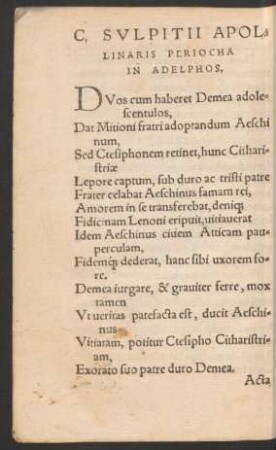 C. SVLPITII APOL-
LINARIS PERIOCHA
IN ADELPHOS.
DVos cum haberet Demea adole-
scentulos,
Dat Mitioni fratri adoptandum Aeschi
num,
Sed Ctesiphonem retinet, hunc Cithari-
striæ
Lepore captum, sub duro ac tristi patre
Frater celabat Aeschinus famam rei,
Amorem in se transferebat, deniq;
Fidicinam Lenoni eripuit, uitiauerat
Idem Aeschinus ciuem Atticam pau-
perculam,
Fidemq; dederat, hanc sibi uxorem fo-
re.
Demea iurgare, & grauiter ferre, mox
tamen
Vt ueritas patefacta est, ducit Aeschi-
nus
Vitiatam, potitur Ctesipho Citharistri-
am,
Exorato suo patre duro Demea.
Acta